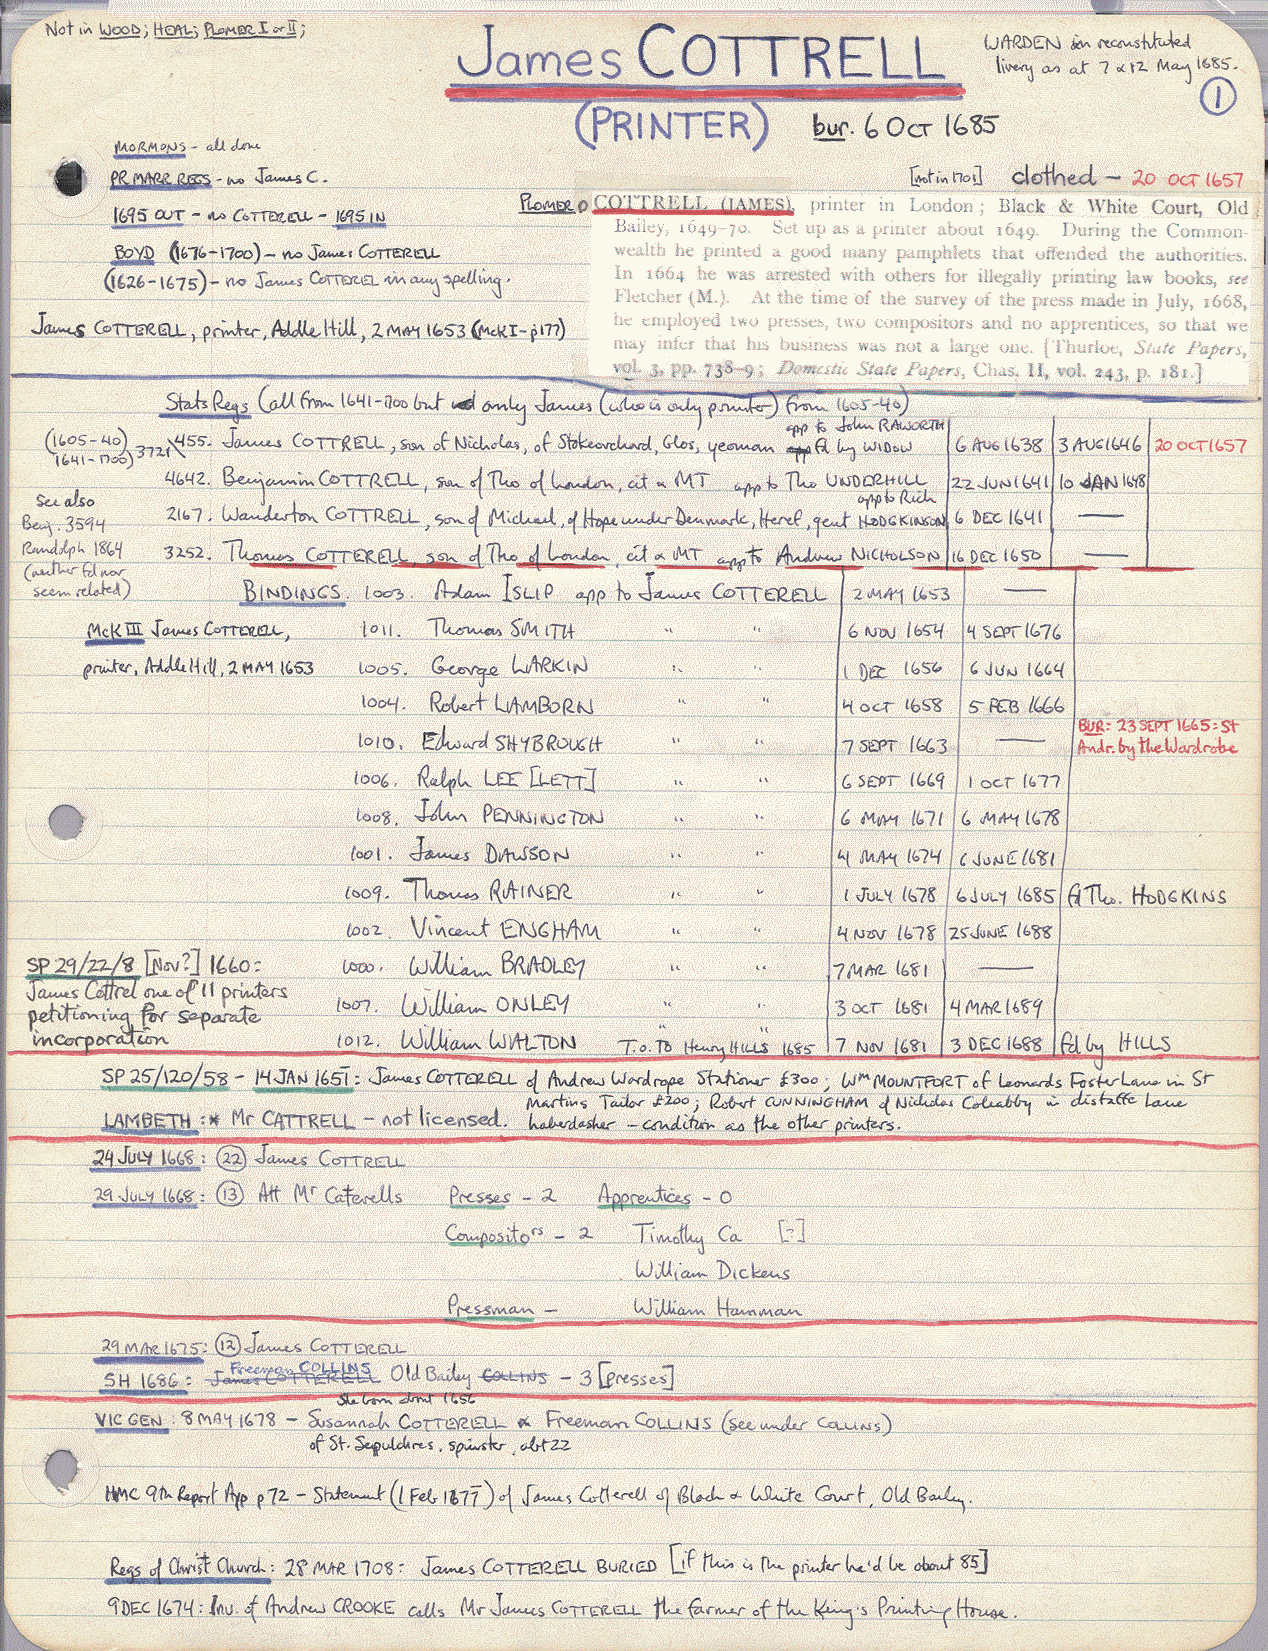 Not in WOOD; HEAL; PLOMER I or II;
James COTTRELL
(PRINTER)
WARDEN in reconstituted
livery as at 7 & 12 May 1685.
1
bur. 6 OCT 1685
MORMONS - all done
PR MARR REGS - no James C.
[not in 1701] clothed - 20 OCT 1657
1695 OUT - no COTTERELL - 1695 IN
BOYD (1676-1700) - no James COTTERELL
(1626-1675) - no James COTTEREL in any spelling.
James COTTERELL, printer, Addle Hill, 2 MAY 1653 (McK I - p177)
PLOMER
COTTRELL (JAMES), printer in London; Black & White Court, Old
Bailey, 1649-70. Set up as a printer about 1649. During the Common-
wealth he printed a good many pamphlets that offended the authorities.
In 1664 he was arrested with others for illegally printing law books, see
Fletcher (M.). At the time of the survey of the press made in July, 1668,
he employed two presses, two compositors and no apprentices, so that we
may infer that his business was not a large one. [Thurloe, State Papers,
vol. 3, pp. 738-9; Domestic State Papers, Chas. II, vol. 243, p. 181.]
Stats Regs (all from 1641-1700 but only James (who is only printer) from 1605-40)
(1605-40) 455. James COTTRELL, son of Nicholas, of Stokeorchard, Glos, yeoman app to John RAWORTH fd by WIDOW 6 AUG 1638 3 AUG 1646 20 OCT 1657
1641-1700) 3721
4642. Benjamin COTTRELL, son of Tho of London, cit & MT app to Tho UNDERHILL 22 JUN 1641 10 JAN 1648
2167. Wanderton COTTRELL, son of Michael, of Hope under Denmark, Heref, gent app to Rich HODGKINSON 6 DEC 1641 —
3252. Thomas COTTERELL, son of Tho of London, cit & MT app to Andrew NICHOLSON 16 DEC 1650 —
see also
Benj. 3594
Randolph 1864
(neither fd nor
seem related)
BINDINGS. 1003. Adam ISLIP app to James COTTERELL 2 MAY 1653 —
McK III James COTTERELL,
printer, Addle Hill, 2 MAY 1653
1011. Thomas SMITH " " 6 NOV 1654 4 SEPT 1676
1005. George LARKIN " " 1 DEC 1656 6 JUN 1664
1004. Robert LAMBORN " " 4 OCT 1658 5 FEB 1666
1010. Edward SHYBROUGH " " 7 SEPT 1663 — BUR: 23 SEPT 1665: St
Andr. by the Wardrobe
1006. Ralph LEE [LETT] " " 6 SEPT 1669 1 OCT 1677
1008. John PENNINGTON " " 6 MAY 1671 6 MAY 1678
1001. James DAWSON " " 4 MAY 1674 6 JUNE 1681
1009. Thomas RAINER " " 1 JULY 1678 6 JULY 1685 fd Tho. HODGKINS
1002. Vincent ENGHAM " " 4 NOV 1678 25 JUNE 1688
1000. William BRADLEY " " 7 MAR 1681 —
1007. William ONLEY " " 3 OCT 1681 4 MAR 1689
1012. William WALTON " " T.O. TO Henry HILLS 1685 7 NOV 1681 3 DEC 1688 fd by HILLS
SP 29/22/8 [Nov?] 1660:
James Cottrel one of 11 printers
petitioning for separate
incorporation
SP 25/120/58 - 14 JAN 1651: James COTTERELL of Andrew Wardrope Stationer £300; Wm MOUNTFORT of Leonards Foster Lane in St
Martins Tailor £200; Robert CUNNINGHAM of Nicholas Coleabby in distaffe Lane
haberdasher - condition as the other printers.
LAMBETH: * Mr CATTRELL - not licensed.
24 JULY 1668: 22 James COTTRELL
29 JULY 1668: 13 Att Mr Caterells Presses - 2 Apprentices - 0
Compositors - 2 Timothy Ca [-]
William Dickens
Pressman - William Hamman
29 MAR 1675: 12 James COTTERELL
SH 1686: James COTTERELL Freeman COLLINS Old Bailey COLLINS - 3 [presses]
She born about 1656
VIC GEN: 8 MAY 1678 - Susannah COTTERELL & Freeman COLLINS (see under COLLINS)
of St. Sepulchres, spinster, abt 22
HMC 9th Report App p 72 - Statement (1 Feb 1677) of James Cotterell of Black & White Court, Old Bailey.
Regs of Christ Church: 28 MAR 1708: James COTTERELL BURIED [if this is the printer he'd be about 85]
9 DEC 1674: Inv. of Andrew CROOKE calls Mr James COTTERELL the farmer of the King's Printing House.